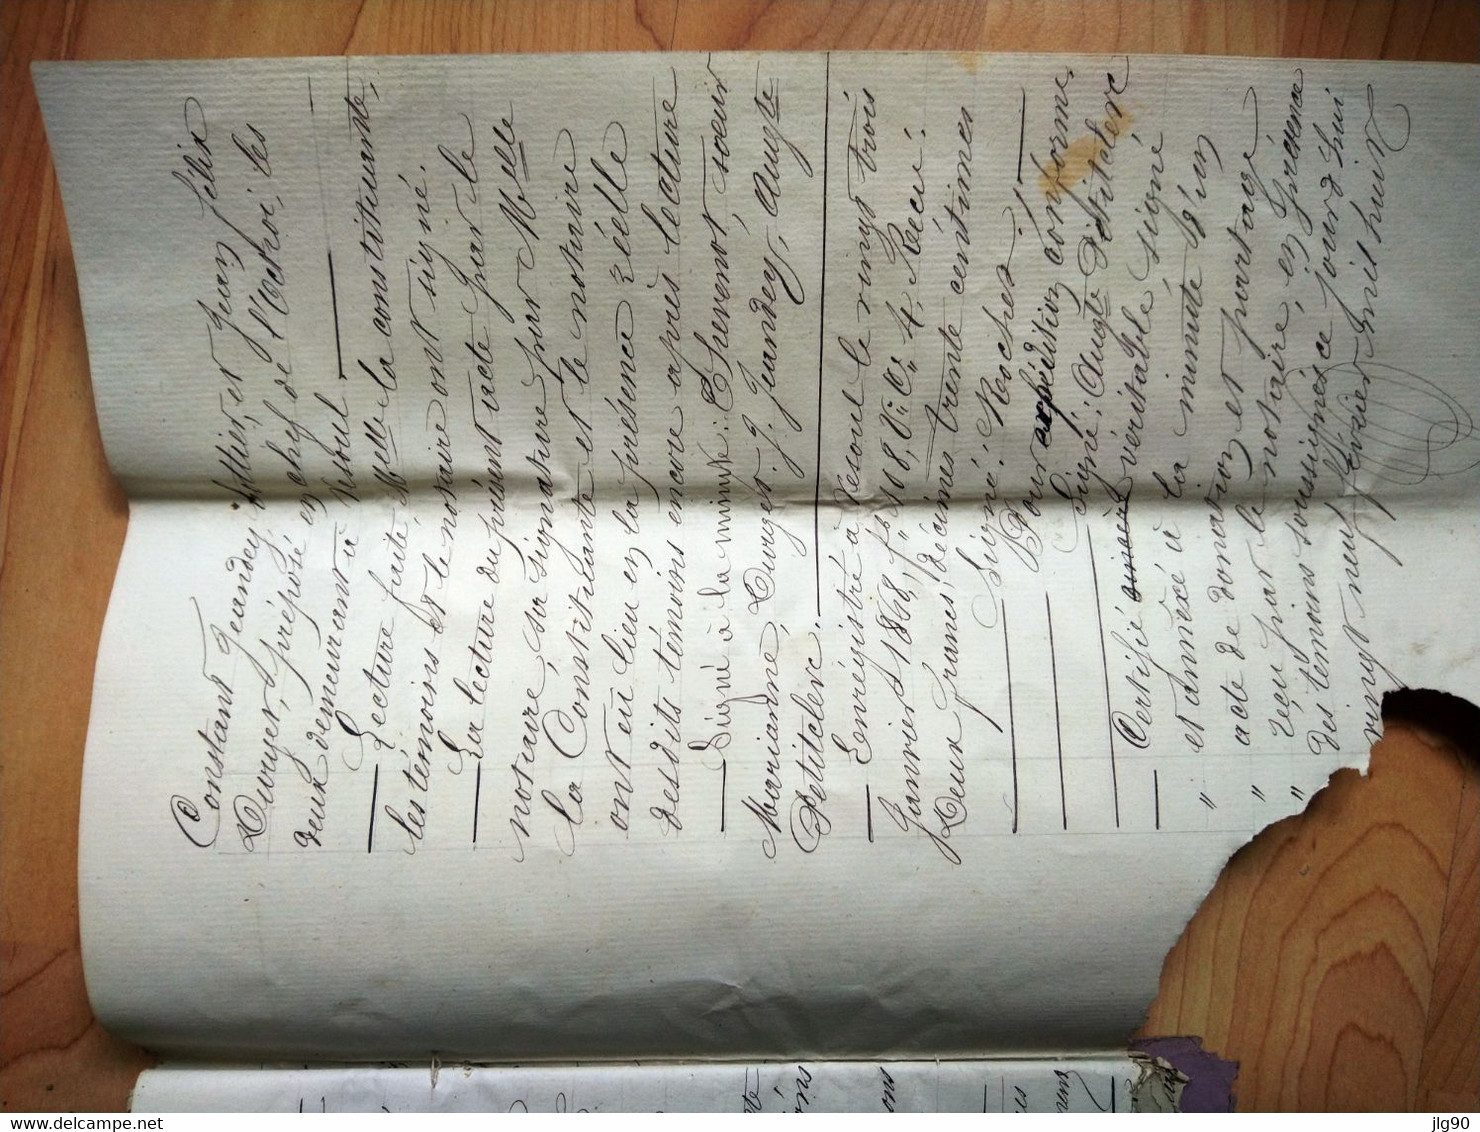 Constant Jeandey Mollier, et Jean Félix
Duruget, préposé en chef de l'Octroi, les
deux demeurant à Vesoul
Lecture faite, Melle la constituante,
les témoins et le notaire ont signé.
La lecture du présent acte par le
notaire, la signature par Melle
la Constituante et le notaire
ont eu lieu en la présence réelle
desdits témoins encore après lecture
Signé à la minute: Thevenot, soeur
Marianne, Duruget, J. Jeandey, Augte
Petitclerc.
Enregistré à Vesoul le vingt trois
Janvier 1868, f° 108, V. C. 4. Reçu:
Deux francs, décimes trente centimes
Signé: Roches.
Pour expédition conforme,
Signé: Augte Petitclerc
Certifié véritable signé
et annexé à la minute d'un
" acte de donation et partage
" reçu par le notaire, en présence
" des témoins soussignés ce jourd'hui
vingt neuf février mil huit
delcampe.net
jlg90